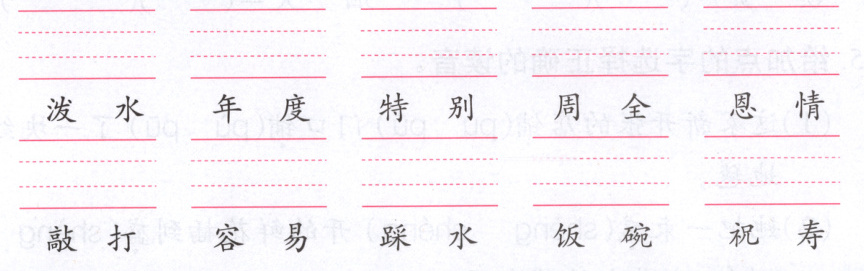 泼水 年度 特别 周全 恩情
敲打 容易 踩水 饭碗 祝寿